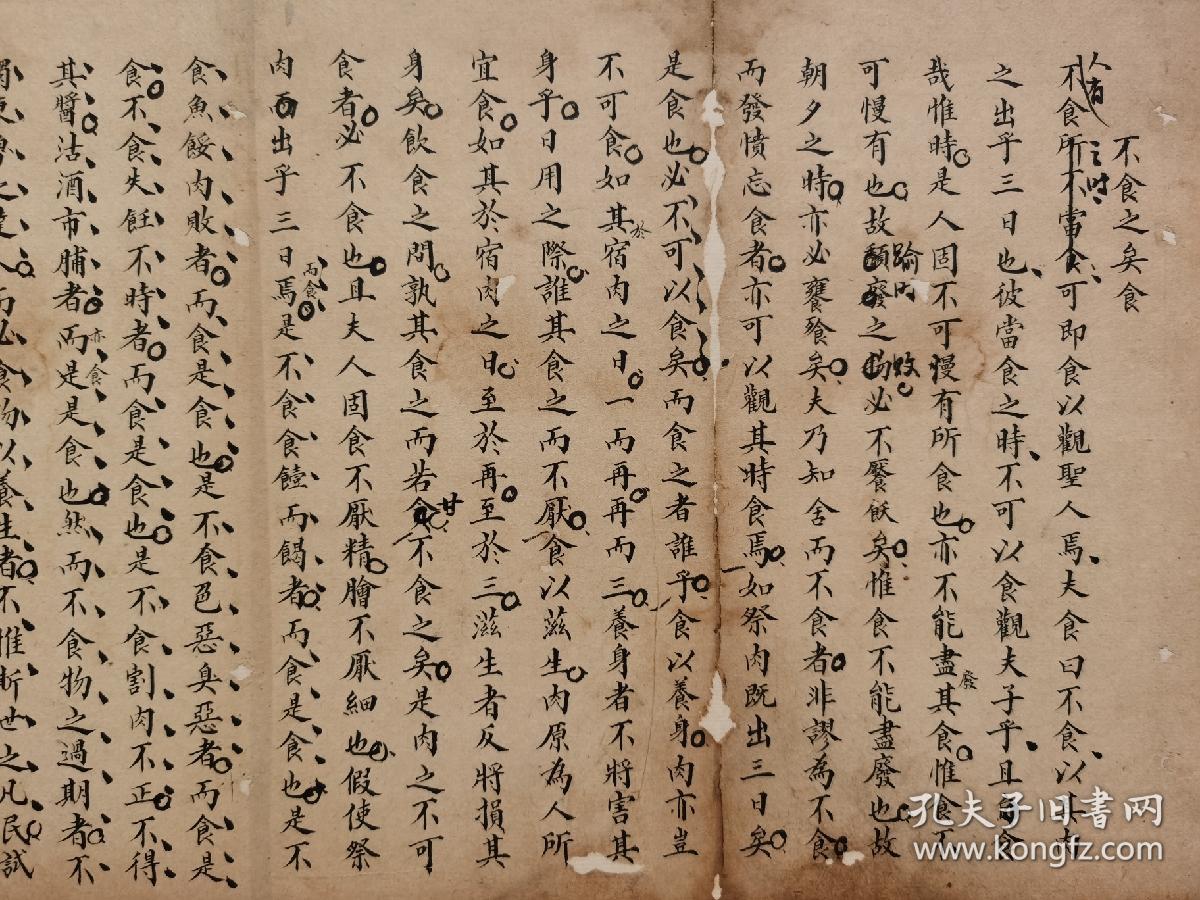 不食之矣食
人有之時
不食所不當食可即食以觀聖人焉夫食曰不食以其有
之出乎三日也彼當食之時不可以食觀夫子乎且食食
哉惟時是人固不可慢有所食也亦不能盡其食惟食不
廢
可慢有也故廢之物必不饜飫矣惟食不能盡廢也故
朝夕之時亦必饔飧矣夫乃知舍而不食者非謬為不食
而發憤忘食者亦可以觀其時食焉如祭肉既出三日矣
是食也必不可以食矣而食之者誰乎食以養身肉亦豈
不可食如其宿肉之日一而再再而三養身者不將害其
於
身乎日用之際誰其食之而不厭食以滋生肉原為人所
宜食如其於宿肉之日至於再至於三滋生者反將損其
身矣飲食之問孰其食之而若食不食之矣是肉之不可
甘
食者必不食也且夫人固食不厭精膾不厭細也假使祭
肉而出乎三日焉是不食食饐而餲者而食是食也是不
而食
食魚餒肉敗者而食是食也是不食色惡臭惡者而食是
食不食失飪不時者而食是食也是不食割肉不正不得
其醬沽酒市脯者而是是食也然而不食物之過期者不
亦食
人而必食物以養生者不惟斯世之凡民試
孔夫子旧书网
www.kongfz.com